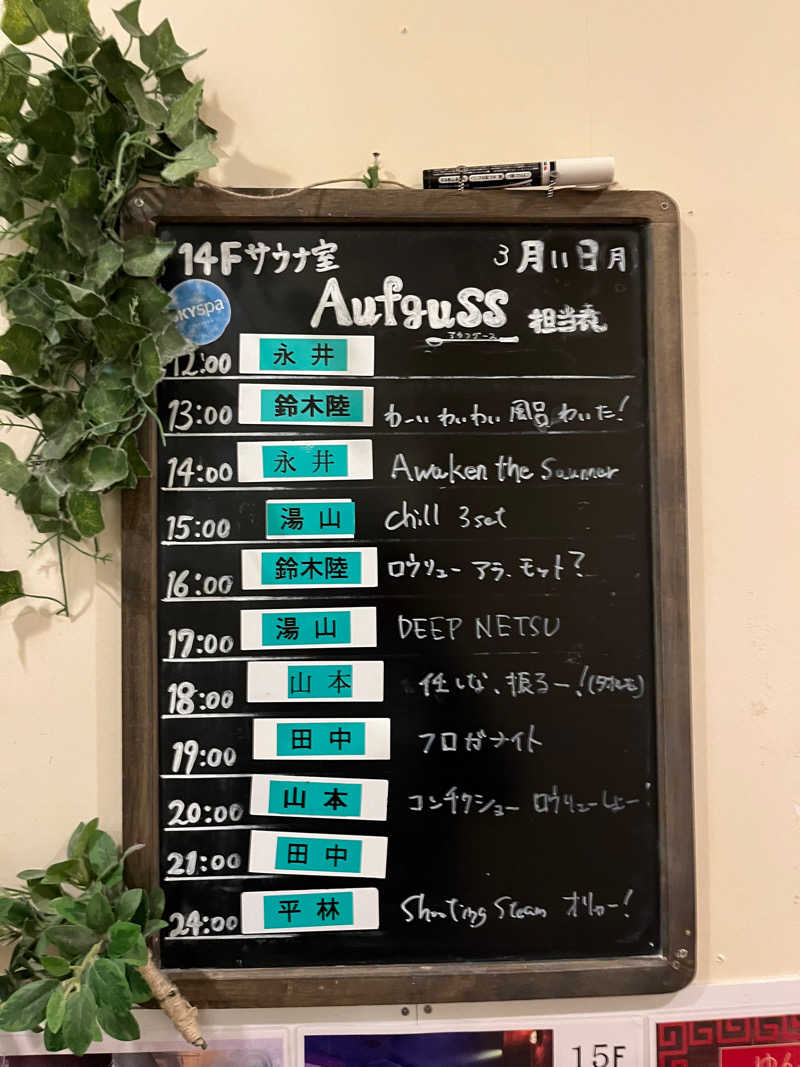 14Fサウナ室 3月11日月
SKYspa
Aufguss 担当表
アウフグース
12:00 永井
13:00 鈴木陸 わーいわいわい風呂わいた!
14:00 永井 Awaken the Saunner
15:00 湯山 chill 3set
16:00 鈴木陸 ロウリュー アラ、モット?
17:00 湯山 DEEP NETSU
18:00 山本 任しな、振るー!
19:00 田中 フロガナイト
20:00 山本 コンチクショー ロウリューしょー!
21:00 田中
24:00 平林 Shooting Steam オリャー!
15F